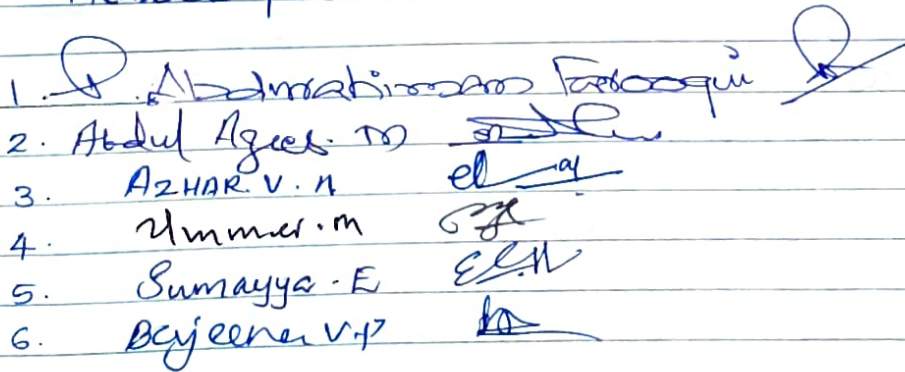 1. P. Abdurahiman Farooqui
2. Abdul Azees. M
3. AZHAR. V. A
4. Ummer. m
5. Sumayya. E
6. Bajeena V.P